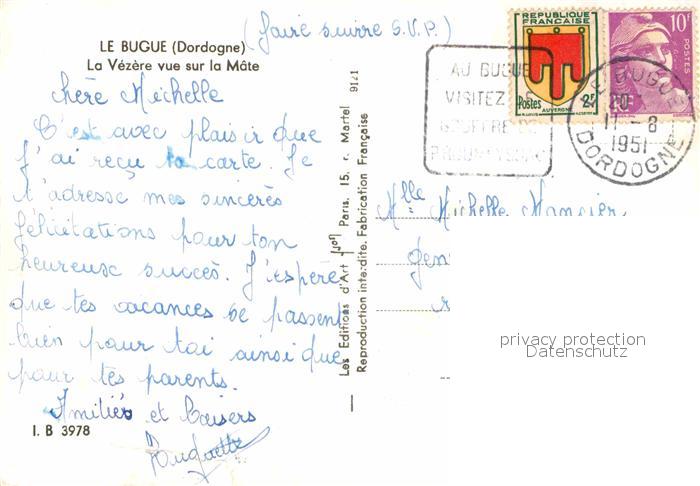 (faire suivre S.V.P.)
LE BUGUE (Dordogne)
La Vézère vue sur la Mâte
Chère Michelle
C'est avec plaisir que
j'ai reçu ta carte. Je
t'adresse mes sincères
félicitations pour ton
heureux succès. J'espère
que tes vacances se passent
bien pour toi ainsi que
pour tes parents.
Amitiés et baisers
Huguette
I. B 3978
9121
Les Editions d'Art "Yvon" Paris, 15, r. Martel
Reproduction interdite. Fabrication Française
AU BUGUE
VISITEZ LE
GOUFFRE DE
PROUMEYSSAC
REPUBLIQUE FRANÇAISE
Postes AUVERGNE 2F
10F
POSTES
LE BUGUE
20H
11-8
1951
DORDOGNE
Mlle Michelle
privacy protection
Datenschutz